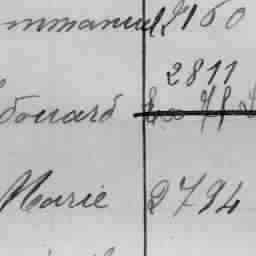 mmanuel 2160
2811
douard
Marie 2794